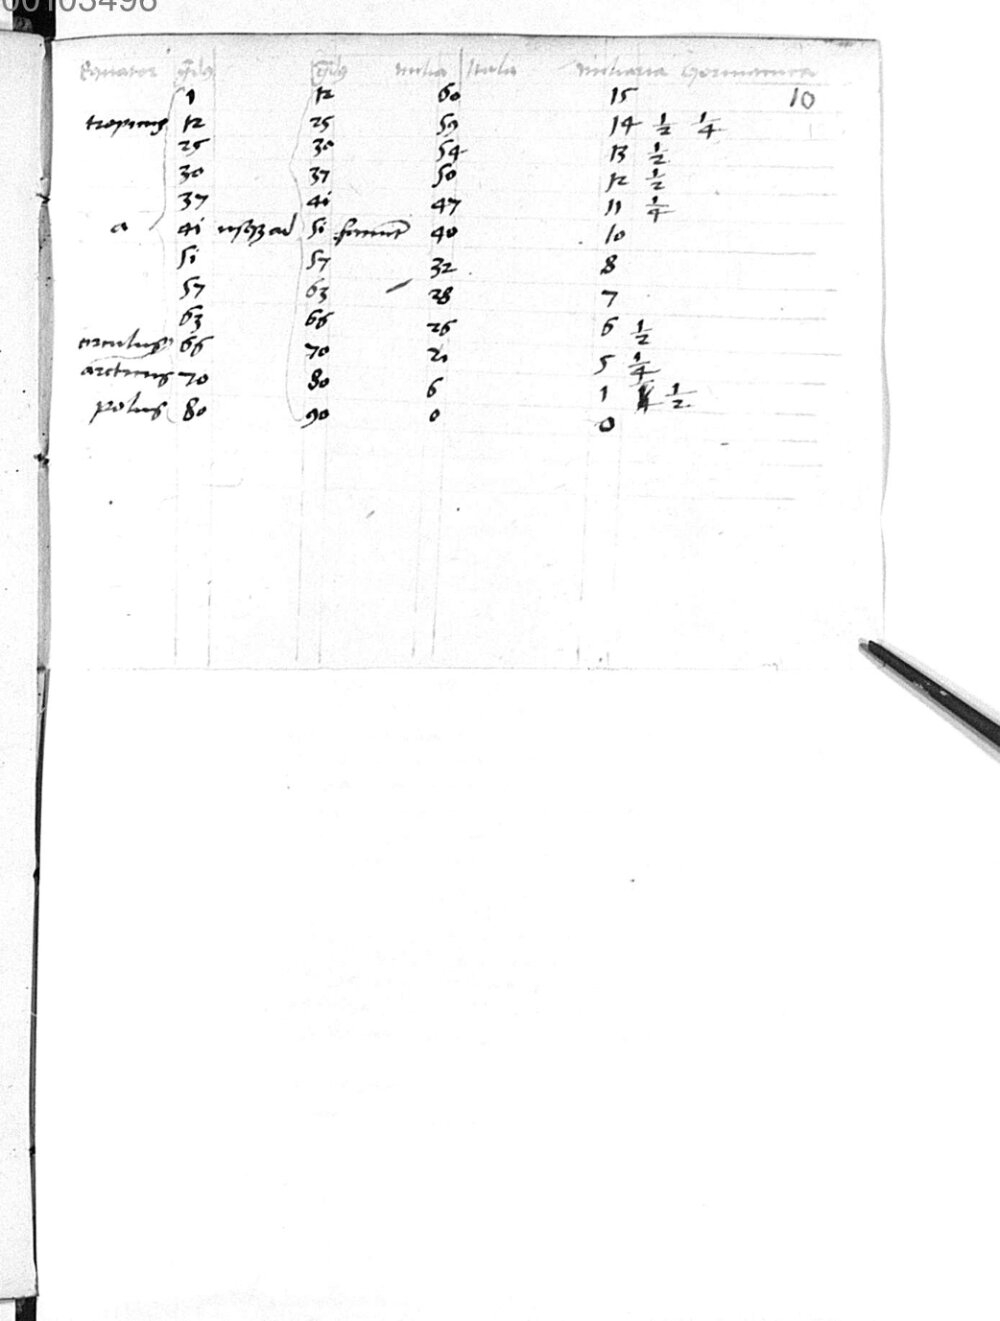 00103496
Equator gradus gradus milia Itala miliaria Germanica
1 12 60 15 10
tropicus 12 25 59 14 1/2 1/4
25 30 54 13 1/2
30 37 50 12 1/2
37 41 47 11 1/4
a 41 usqz ad 51 faciunt 40 10
51 57 32 8
57 63 28 7
63 66 26 6 1/2
circulus 66 70 21 5 1/4
arcticus 70 80 6 1 1/2
polus 80 90 0 0